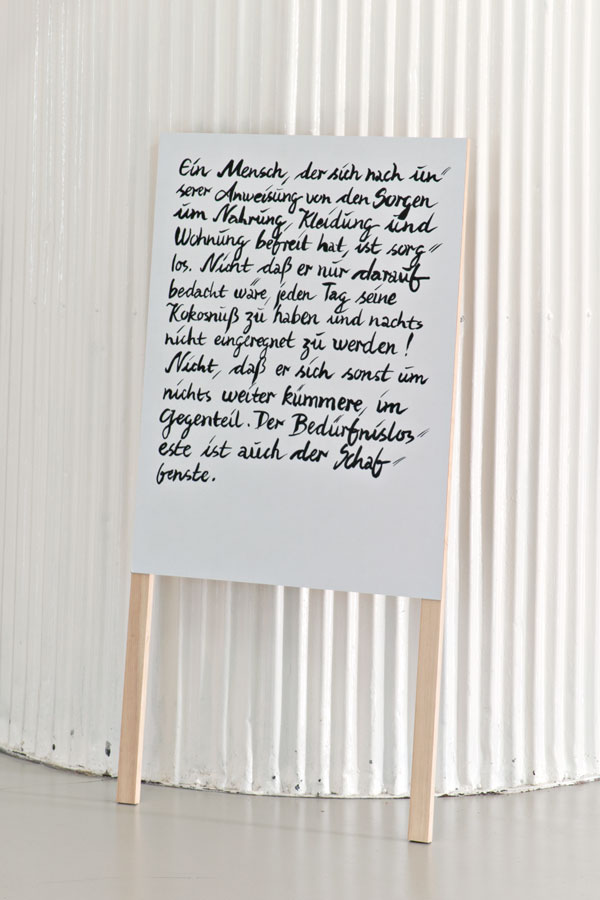 Ein Mensch, der sich nach un"
serer Anweisung von den Sorgen
um Nahrung, Kleidung und
Wohnung befreit hat, ist sorg"
los. Nicht daß er nur darauf
bedacht wäre, jeden Tag seine
Kokosnuß zu haben und nachts
nicht eingeregnet zu werden!
Nicht, daß er sich sonst um
nichts weiter kümmere, im
Gegenteil. Der Bedürfnislos"
este ist auch der Schaf"
fenste.